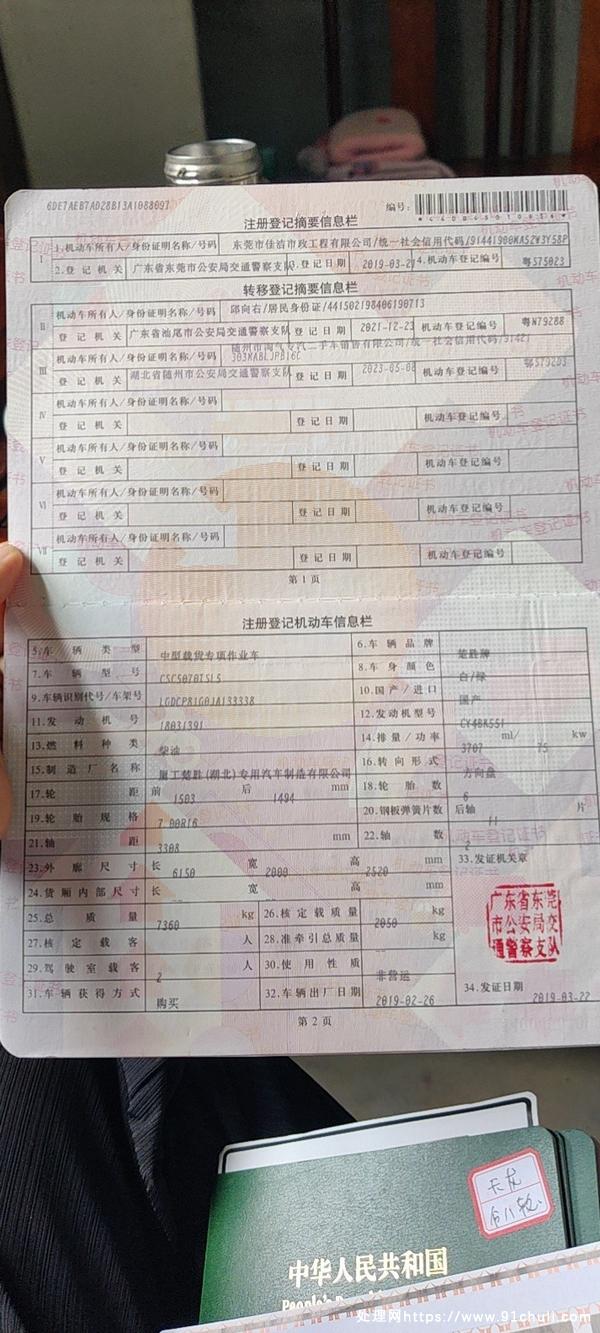 6DE7AEB7AD28B13A1088097
编号:
注册登记摘要信息栏
Ⅰ 1.机动车所有人/身份证明名称/号码 东莞市佳洁市政工程有限公司/统一社会信用代码/91441900MA52W3Y58P
2.登记机关 广东省东莞市公安局交通警察支队 3.登记日期 2019-03-21 4.机动车登记编号 粤S75023
转移登记摘要信息栏
Ⅱ 机动车所有人/身份证明名称/号码 邱向右/居民身份证/441502198406190713
登记机关 广东省汕尾市公安局交通警察支队 登记日期 2021-12-23 机动车登记编号 粤N79288
Ⅲ 机动车所有人/身份证明名称/号码 随州市淘气专汽二手车销售有限公司/统一社会信用代码/91421
303MABLJPB16C
登记机关 湖北省随州市公安局交通警察支队 登记日期 2023-05-08 机动车登记编号 鄂S79203
Ⅳ 机动车所有人/身份证明名称/号码
登记机关 登记日期 机动车登记编号
Ⅴ 机动车所有人/身份证明名称/号码
登记机关 登记日期 机动车登记编号
Ⅵ 机动车所有人/身份证明名称/号码
登记机关 登记日期 机动车登记编号
Ⅶ 机动车所有人/身份证明名称/号码
登记机关 登记日期 机动车登记编号
第1页
注册登记机动车信息栏
5.车辆类型 中型载货专项作业车 6.车辆品牌 楚胜牌
7.车辆型号 CSC5070TSL5 8.车身颜色 白/绿
9.车辆识别代号/车架号 LGDCP81G0JA133338 10.国产/进口 国产
11.发动机号 18031391 12.发动机型号 CY4BK551
13.燃料种类 柴油 14.排量/功率 3707 ml/ 75 kw
15.制造厂名称 厦工楚胜(湖北)专用汽车制造有限公司 16.转向形式 方向盘
17.轮距 前 1503 后 1494 mm 18.轮胎数 6
19.轮胎规格 7.00R16 20.钢板弹簧片数 后轴 11 片
21.轴距 3308 mm 22.轴数 2
23.外廓尺寸 长 6150 宽 2000 高 2520 mm 33.发证机关章
24.货厢内部尺寸 长 宽 高 mm
25.总质量 7360 kg 26.核定载质量 2050 kg
27.核定载客 人 28.准牵引总质量 kg
29.驾驶室载客 2 人 30.使用性质 非营运
31.车辆获得方式 购买 32.车辆出厂日期 2019-02-26 34.发证日期 2019-03-22
广东省东莞
市公安局交
通警察支队
第2页
天龙
中华人民共和国
处理网https://www.91chull.com